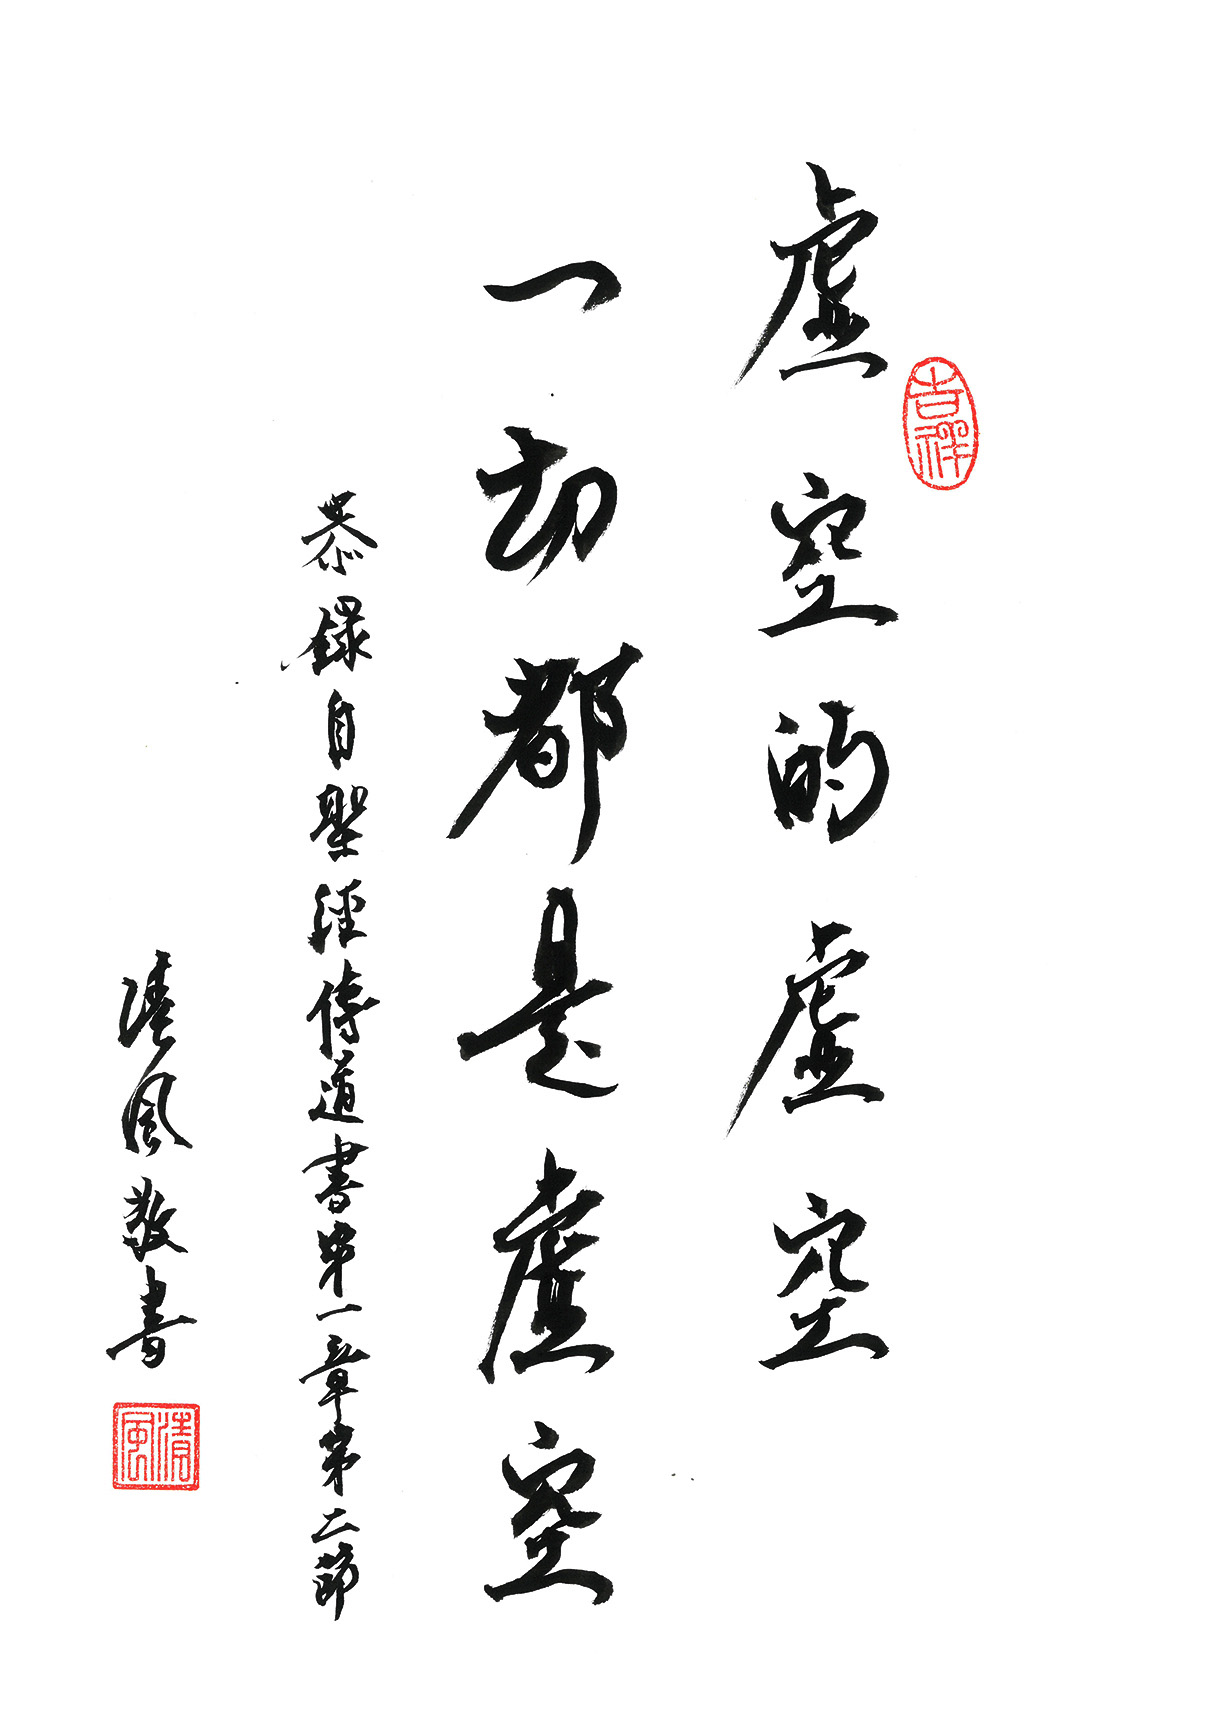 吉祥
虛空的虛空
一切都是虛空
恭錄自聖經傳道書第一章第二節
清風敬書
清風